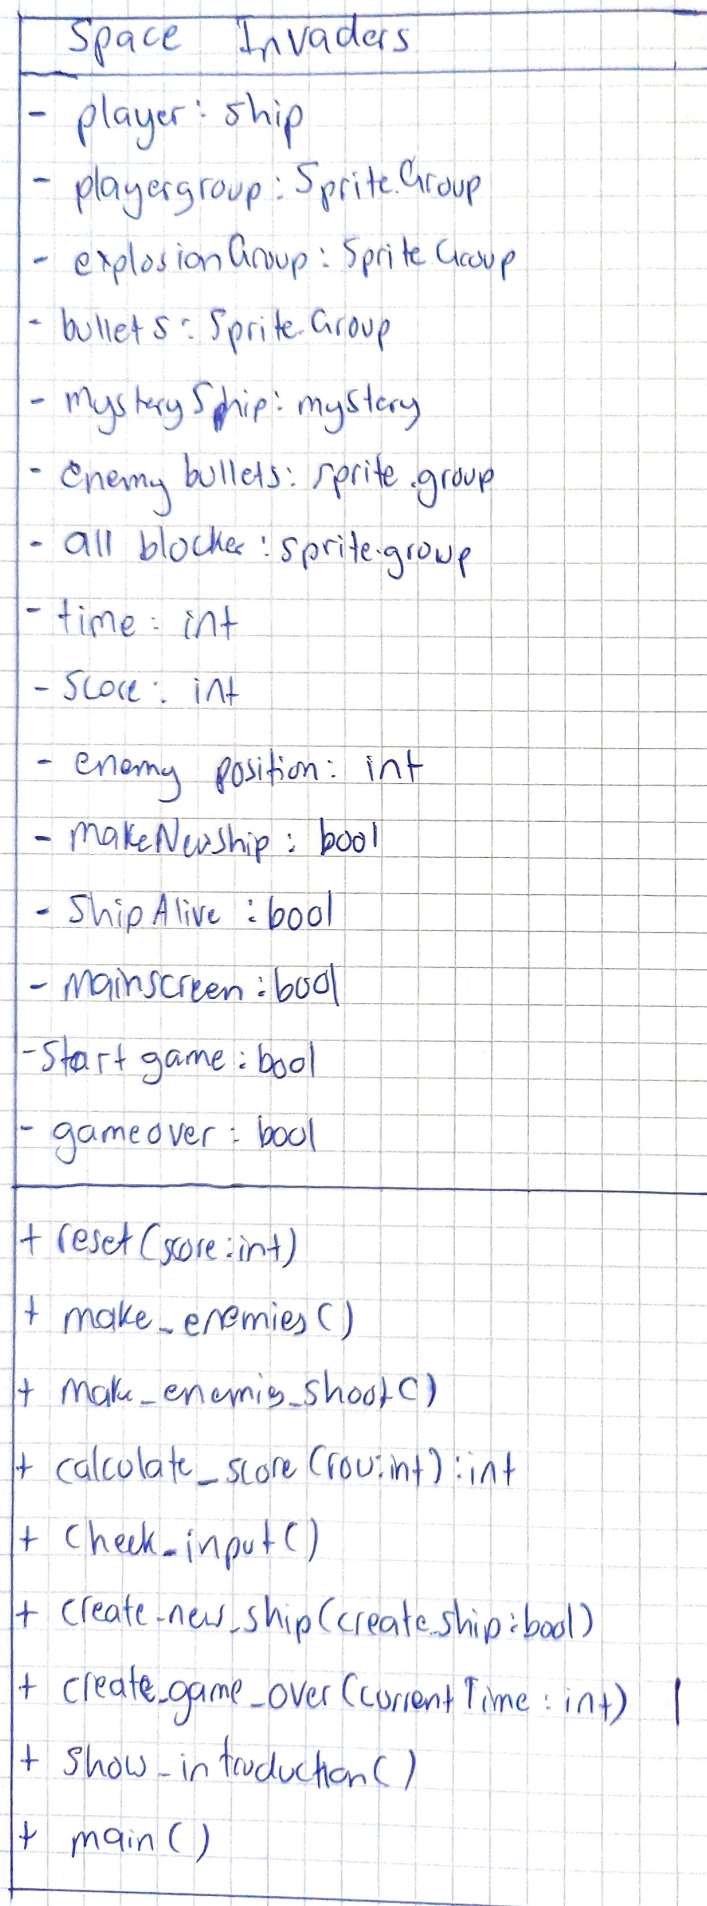 Space Invaders
- player: ship
- playergroup: Sprite.Group
- explosionGroup: Sprite Group
- bullets: Sprite.Group
- mystery Ship: mystery
- Enemy bullets: sprite.group
- all blocker: sprite.group
- time: int
- Score: int
- enemy position: int
- makeNewship: bool
- Ship Alive: bool
- Mainscreen: bool
- Start game: bool
- gameover: bool
+ reset(score:int)
+ make_enemies()
+ make_enemies_shoot()
+ calculate_score(row:int):int
+ Check_input()
+ Create_new_ship(create_ship:bool)
+ Create_game_over(current Time: int)
+ Show_introduction()
+ main()